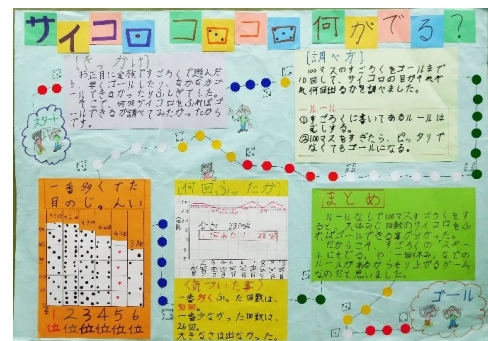 サイコロ コロコロ 何がでる?
(きっかけ)
お正月に家族ですごろくで遊んだ
ら、早くゴールしたり、なかなかゴ
ールできなかったり
そこで、何回サイコロをふればゴ
ールできるか調べてみたかったから
です。
[調べ方]
100マスのすごろくをゴールまで
10回して、サイコロの目がそれぞ
れ何回出るかを調べました。
ールールー
①すごろくに書いてあるルールは
むしする。
②100マスをすぎたら、ピッタリで
なくてもゴールになる。
スタート
一番多くでた
目のじゅんい
1 2 3 4 5 6
位 位 位 位 位 位
何回ふったか
合計
<気づいた事>
一番多くふった回数は、
30回。
一番少なかった回数は、
26回。
大きなさは出なかった。
まとめ
ルールなしで100マスすごろくをす
ると、大体同じ回数のサイコロをふ
ればゴールできる事が分かった。
だからこそ、すごろくの「スタート
にもどる」や「一回休み」などの
ルールがあるからもり上がるゲーム
なのだと思いました。
ゴール